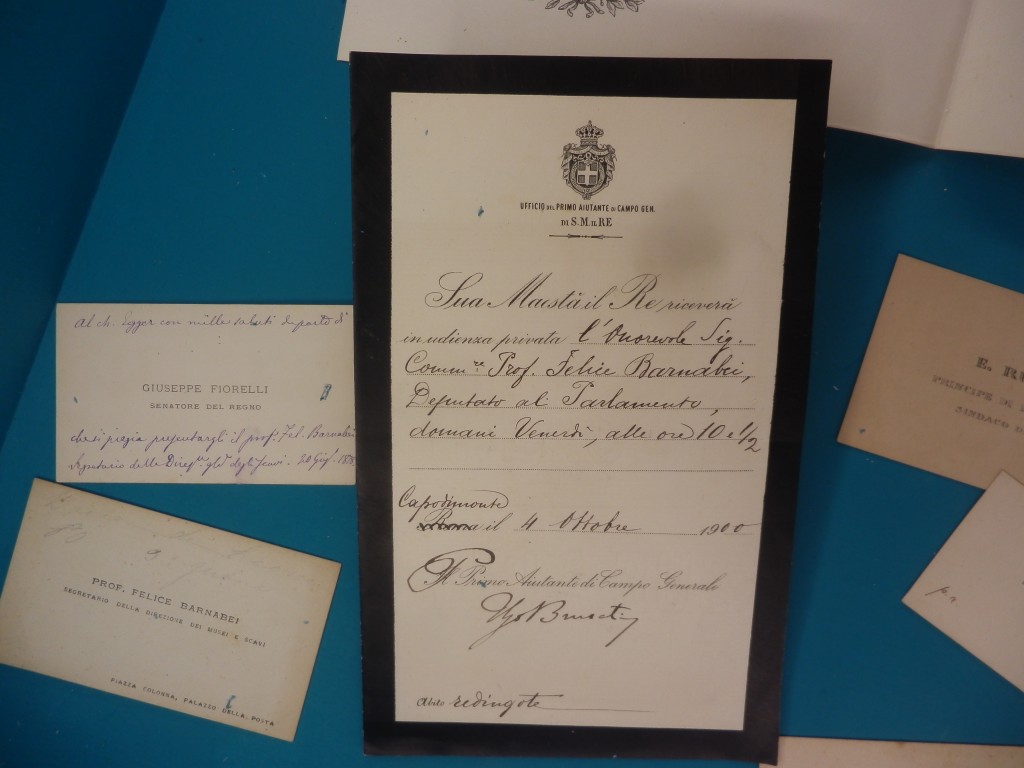 UFFICIO DEL PRIMO AIUTANTE DI CAMPO GEN.
DI S.M. IL RE
Sua Maestà il Re riceverà
in udienza privata l'Onorevole Sig.
Comm.re Prof. Felice Barnabei,
Deputato al Parlamento,
domani Venerdì, alle ore 10 e 1/2
Capodimonte
Roma il 4 Ottobre 1900
Il Primo Aiutante di Campo Generale
Abito redingote
Al ch. Egger con mille saluti da parte di
GIUSEPPE FIORELLI
SENATORE DEL REGNO
che si pregia presentargli il prof. Fel. Barnabei
Segretario della Direz.ne degli Scavi.
PROF. FELICE BARNABEI
SEGRETARIO DELLA DIREZIONE DEI MUSEI E SCAVI
PIAZZA COLONNA, PALAZZO DELLA POSTA
E. R
PRINCIPE DI
SINDACO D